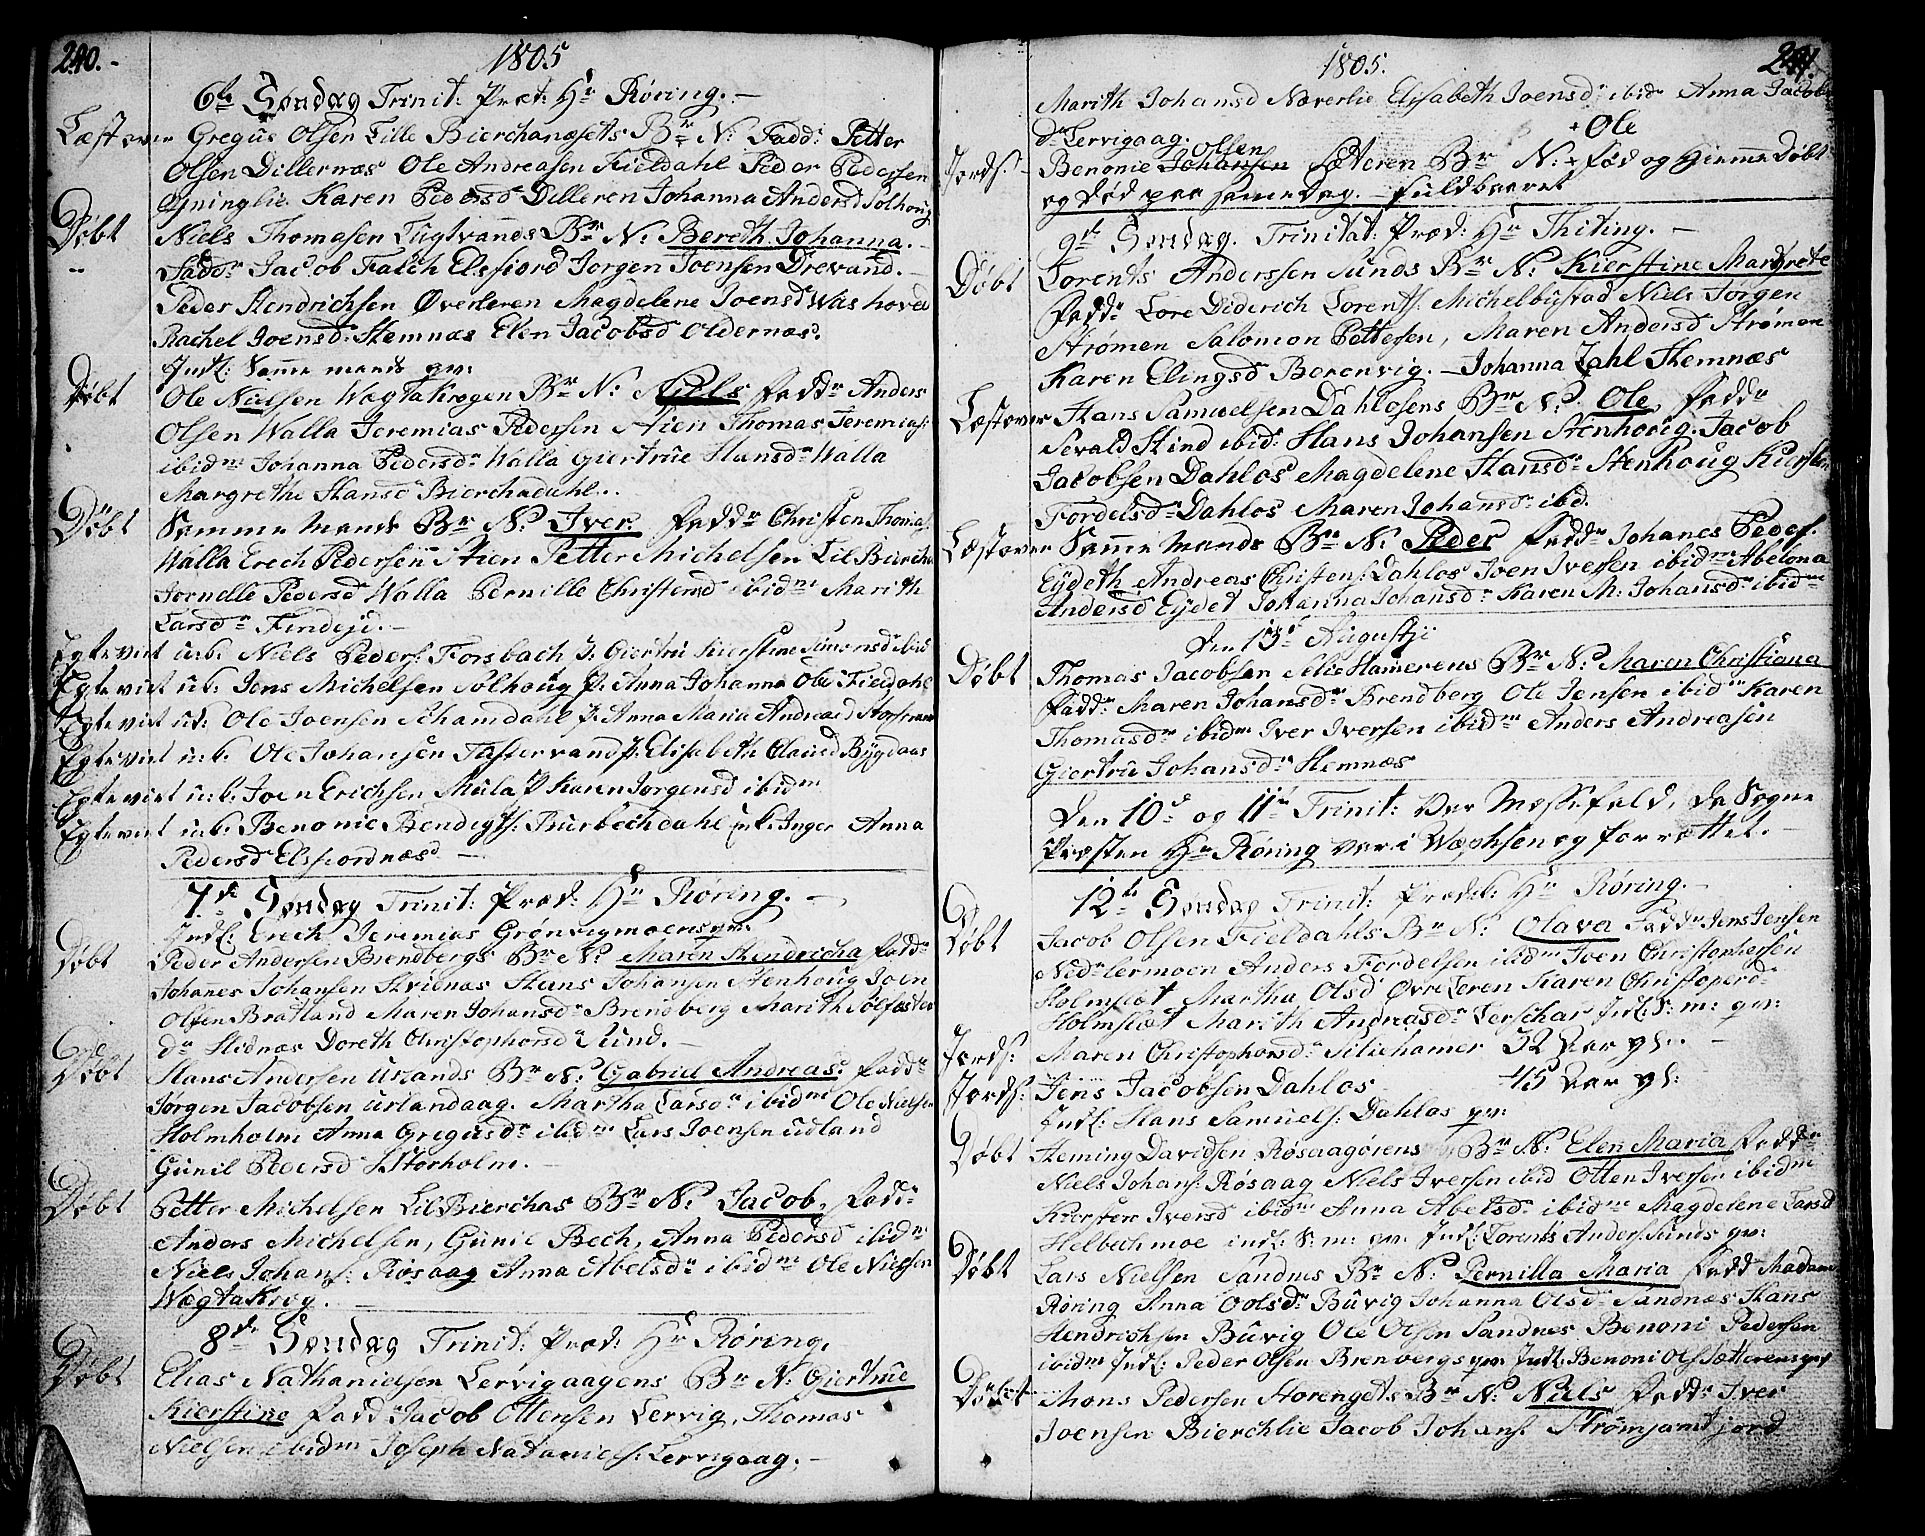 240.
1805
6te Søndag Trinit: Præd: Hr Røring.
Læst over Gregus Olsen Lille Bierchanæsets Br N: Fadd: Petter
Olsen Dillernæs Ole Andreasen Fieldahl Peder Pedersen
Karen Pedersd Dilleren Johanna Andersd Solhoug
Døbt Niels Thomasen Lugtvands Br N: Bereth Johanna.
Fadd: Jacob Falch Elsfiord Jørgen Joensen Drevand.
Peder Hendrichsen Øverleren Magdelene Joensd Washoved
Rachel Joensd Hemnæs Elen Jacobsd Oldernæs.
Indl: Samme mands qv:
Døbt Ole Nielsen Wægtakrogen Br N: Niels Fadd: Anders
Olsen Walla Jeremias Pedersen Stien Thomas Jeremias:
ibidm Johanna Pedersd Walla Giertrue Hansd Walla
Margrethe Hansd Bierchadahl.
Døbt Samme Mands Br N: Iver Fadd: Christen Thomas:
Walla Erech Pedersen Stien Petter Michelsen Lil Biercha
Pedersd Walla Pernille Christensd ibidm Marith
Larsd
Egteviet u:b: Niels Peders: Forsbach P: Giertru Kierstine Simonsd ibid
Egteviet u:b: Jens Michelsen Solhoug P: Anna Johanna Ole Fieldahl
Egteviet u:b: Ole Joensen Schamdahl P: Anna Maria Andreasd
Egteviet u:b: Ole Johansen Tustervand P: Elisabeth Clausd Bygdaas
Egteviet u:b: Joen Erichsen Mula P Karen Jørgensd ibidm
Egteviet u:b: Benonie Bendigts: Burbechdahl Enk: Inger Anna
Pedersd Elsfiordnæs
7de Søndag Trinit: Præd: Hr Røring.
Indl: Erich Jeremias Grønvigmoens qv:
Døbt Peder Andersen Brendbergs Br N: Maren Hendricha Fadd:
Johanes Johansen Hvidnæs Hans Johansen Stenhoug Joen
Olsen Bratland Maren Johansd Brendberg Marith Solfæster
d: Hvidnæs Doreth Christophersd Sund.
Døbt Hans Andersen Urlands Br N: Gabriel Andreas: Fadd:
Jørgen Jacobsen Urlandaag. Martha Larsd ibidm Ole Nielsen
Holmholm Anna Gregusd ibidm Lars Joensen Udland
Gunil Pedersd Storholm.
Døbt Petter Michelsen Lil Bierchas Br N: Jacob. Fadd:
Anders Michelsen, Gunil Bech, Anna Pedersd ibidm
Niels Johans: Røsaag Anna Abelsd ibidm Ole Nielsen
Wægtakrog.
8de Søndag Trinit: Præd: Hr Røring.
Døbt Elias Nathanielsen Lervigaagens Br N: Giertrue
Kierstine Fadd: Jacob Ottensen Lervig, Thomas
Nielsen ibidm Joseph Nataniels: Lervigaag.
1805.
241.
Marith Johansd Næverlie Elisabeth Joensd ibidm Anna Jacobs
d: Lervigaag.
Jords: Benonie Johansen Olsen Sæteren Br N: + Ole Fød og Hiemme Døbt
og Død paa same Dag. Fuldbaaret
9de Søndag. Trinitat: Præd: Hr Thiting.
Døbt Lorents Anderssen Sunds Br N: Kierstine Margrete
Fadd: Lore Diderich Lorents: Michelbustad Niels Jørgen
Strømen Salomon Pettersen, Maren Andersd Strømen
Karen Elingsd Berenvig. Johanna Zahl Hemnæs
Læst over Hans Samuelsen Dahlosens Br N: Ole. Fadd:
Sevald Stind ibid: Hans Johansen Stenhoug. Jacob
Jacobsen Dahlos Magdelene Hansd Stenhoug Kiersten
Fordelsd Dahlos Maren Johansd ibid.
Læst over Samme Mands Br N: Peder Fadd: Johanes Peders:
Eydeth Andreas Christens: Dahlos Joen Iversen ibidm Abelona
Andersd Eydet Johanna Johansd Karen M: Johansd ibidm
Den 13de Augustji
Døbt Thomas Jacobsen Silie Hamerens Br N: Maren Christiana
Fadd: Maren Johansd Brendberg Ole Jensen ibidm Karen
Thomasd ibidm Iver Iversen ibidm Anders Andreasen
Giertru Johansd Hemnæs
Den 10de og 11te Trinit: Var Messefald, da Sogne
Præsten Hr Røring var i Wæphsen og forrettet.
12te Søndag Trinit: Prædik: Hr Røring.
Døbt Jacob Olsen Fieldahls Br N: Olava Fadd: Jens Jensen
Nedlermoen Anders Fordelsen ibidm Joen Christophersen
Holmslet Martha Olsd Øvreleren Karen Christoperd
Holmslet Marith Andreasd Lerschar Indl: S: m: qv:
Jords: Maren Christophersd Siliehamer 52 Aar gl:
Jords: Jens Jacobsen Dahlos 45 Aar gl:
Indl: Hans Samuels: Dahlos qv:
Døbt Heming Davidsen Røsaagørens Br N: Elen Maria Fadd:
Niels Johans: Røsaag Niels Iversen ibid Otten Iversen ibidm
Kiersten Iversd ibidm Anna Abelsd ibidm Magdelene Larsd
Helbechmoe indl: S: m: qv: Indl: Lorents Anders: Sunds qv:
Døbt Lars Nielsen Sandnes Br N: Pernilla Maria Fadd: Madam
Røring Anna Oolsd Buvig Johanna Olsd Sandnæs Hans
Hendrichsen Buvig Ole Olsen Sandnes Benoni Pedersen
ibidm Indl: Peder Olsen Brenbergs qv: Indl: Benoni Ols: Sætterens qv:
Døbt Mons Pedersen Storengets Br N: Niels Fadd: Iver
Joensen Bierchlie Jacob Johans: